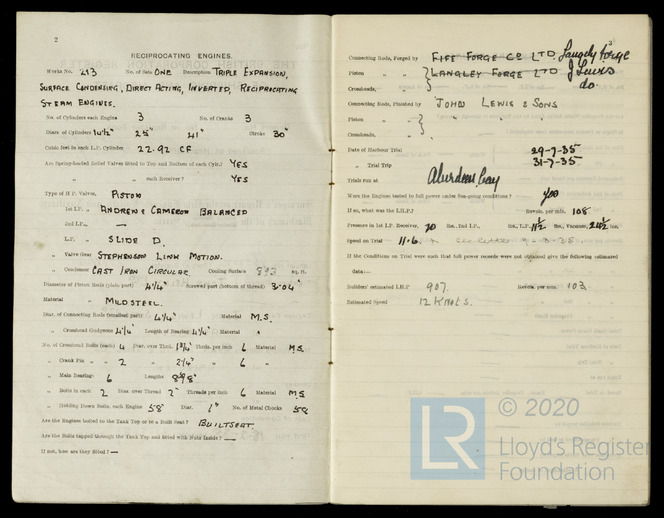 2
RECIPROCATING ENGINES.
Works No. 213 No. of Sets ONE Description TRIPLE EXPANSION,
SURFACE CONDENSING, DIRECT ACTING, INVERTED, RECIPROCATING
STEAM ENGINES.
No. of Cylinders each Engine 3 No. of Cranks 3
Diars. of Cylinders 14½" 41" Stroke 30"
Cubic feet in each L.P. Cylinder 22.92 CF
Are Spring-loaded Relief Valves fitted to Top and Bottom of each Cylr.? YES
" " each Receiver? YES
Type of H P. Valves, PISTON
1st I.P. " ANDREW & CAMERON BALANCED
2nd I.P. " —
L.P. " SLIDE D.
" Valve Gear STEPHENSON LINK MOTION.
" Condenser CAST IRON CIRCULAR Cooling Surface 893 sq. ft.
Diameter of Piston Rods (plain part) 4¼" Screwed part (bottom of thread) 3.04"
Material MILD STEEL.
Diar. of Connecting Rods (smallest part) 4¼" Material M.S.
" Crosshead Gudgeons 4¼" Length of Bearing 4¼" Material "
No. of Crosshead Bolts (each) 4 Diar. over Thrd. 1¾" Thrds. per inch 6 Material M.S
" Crank Pin " " 2 " 2¼" " 6 "
" Main Bearings 6 Lengths
" Bolts in each 2 Diar. over Thread 2" Threads per inch 6 Material M.S
" Holding Down Bolts, each Engine 58 Diar. 1" No. of Metal Chocks 58
Are the Engines bolted to the Tank Top or to a Built Seat? BUILT SEAT.
Are the Bolts tapped through the Tank Top and fitted with Nuts Inside? —
If not, how are they fitted? —
3
Connecting Rods, Forged by FIFE FORGE CO LTD. Langley Forge
Piston " " LANGLEY FORGE LTD J Lewis
Crossheads, " do.
Connecting Rods, Finished by JOHN LEWIS & SONS
Piston " " "
Crossheads, "
Date of Harbour Trial 29-7-35
" Trial Trip 31-7-35
Trials run at Aberdeen Bay
Were the Engines tested to full power under Sea-going conditions? yes
If so, what was the I.H.P.? Revols. per min. 108
Pressure in 1st I.P. Receiver, 70 lbs., 2nd I.P., lbs., L.P., 11½ lbs., Vacuum, 24½ ins.
Speed on Trial 11.6
If the Conditions on Trial were such that full power records were not obtained give the following estimated
data:—
Builders' estimated I.H.P. 907. Revols. per min. 103
Estimated Speed 12 KNOTS.
© 2020
LR
Lloyd's Register
Foundation